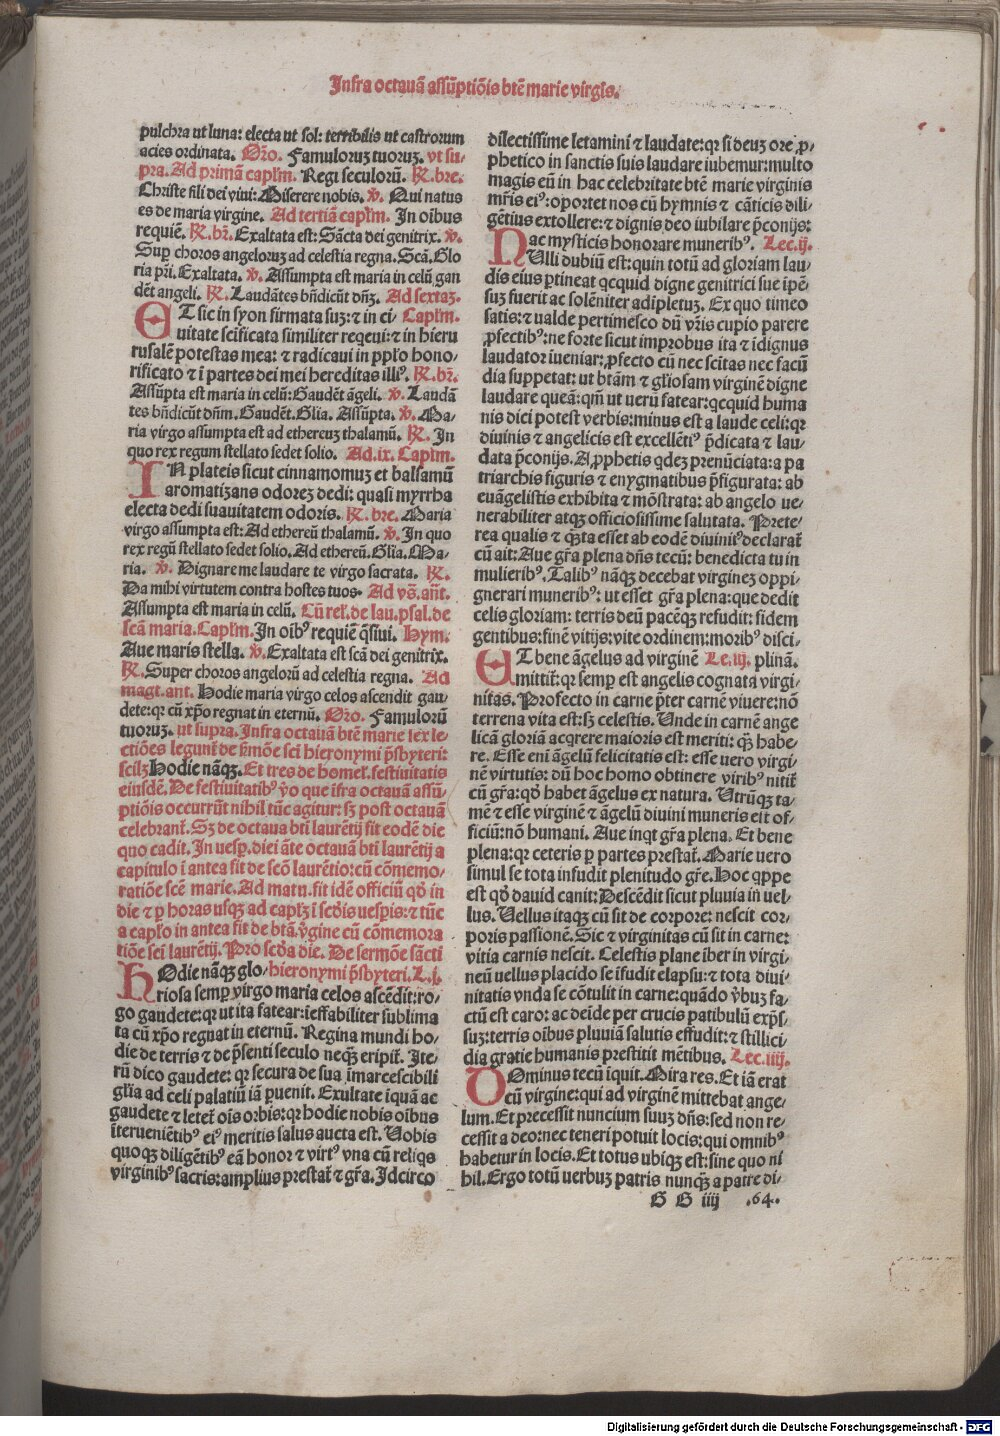 Infra octauā assūptiōis btē marie virgīs.
pulchra ut luna: electa ut sol: terribilis ut castrorum
acies ordinata. Orō. Famuloruꝫ tuoruꝫ. vt su-
pra. Ad primā caplm̄. Regi seculorū. ℟. bre.
Christe fili dei viui: Miserere nobis. ℣. Qui natus
es de maria virgine. Ad tertiā caplm̄. In oībus
requiē. ℟. br̄. Exaltata est: Sācta dei genitrix. ℣.
Suꝑ choros angeloruꝫ ad celestia regna. Scā. Glo
ria pr̄i. Exaltata. ℣. Assumpta est maria in celū gau
dēt angeli. ℟. Laudātes bn̄dicūt dn̄ꝫ. Ad sextaꝫ.
ET sic in syon firmata suꝫ: ⁊ in ci- Caplm̄.
uitate scificata similiter requeui: ⁊ in hieru
rusalē potestas mea: ⁊ radicaui in pplo hono-
rificato ⁊ ī partes dei mei hereditas illiꝰ. ℟. br̄.
Assūpta est maria in celū: Gaudēt āgeli. ℣. Laudā
tes bn̄dicūt dn̄m. Gaudēt. Glīa. Assūpta. ℣. Ma-
ria virgo assumpta est ad ethereuꝫ thalamū. ℟. In
quo rex regum stellato sedet solio. Ad. ix. Caplm̄.
IN plateis sicut cinnamomuꝫ et balsamū
aromatizans odoreꝫ dedi: quasi myrrha
electa dedi suauitatem odoris. ℟. bre. Maria
virgo assumpta est: Ad ethereū thalamū. ℣. In quo
rex regū stellato sedet solio. Ad ethereū. Glīa. Ma-
ria. ℣. Dignare me laudare te virgo sacrata. ℟.
Da mihi virtutem contra hostes tuos. Ad vs̄. an̄t.
Assumpta est maria in celū. Cū rel̄. de lau. psal. de
scā maria. Caplm̄. In oībꝰ requiē q̄siui. Hym.
Aue maris stella. ℣. Exaltata est scā dei genitrix.
℟. Super choros angelorū ad celestia regna. Ad
magt̄. ant. Hodie maria virgo celos ascendit gau-
dete: qꝛ cū xp̄o regnat in eternū. Orō. Famulorū
tuoruꝫ. ut supra. Infra octauā btē marie sex le-
ctiōes legunt̄ de ẜmōe sci hieronymi p̄sbyteri:
scilꝫ Hodie nāqꝫ. Et tres de homel̄. festiuitatis
eiusdē. De festiuitatibꝰ v̄o que īfra octauā assū-
ptiōis occurrūt nihil tūc agitur: sꝫ post octauā
celebrant̄. Sꝫ de octaua btī laurētij fit eodē die
quo cadit. In uesꝑ. diei āte octauā btī laurētij a
capitulo ī antea fit de scō laurētio: cū cōmemo-
ratiōe scē marie. Ad matn̄. fit idē officiū qd̄ in
die ⁊ ꝑ horas usqꝫ ad caplꝫ ī scd̄is uesꝑis: ⁊ tūc
a caplo in antea fit de btā v̄gine cū cōmemora
tiōe sci laurētij. Pro scd̄a die. De sermōe sācti
HOdie nāqꝫ glo- hieronymi p̄sbyteri. L. j.
riosa semꝑ virgo maria celos ascēdit: ro-
go gaudete: qꝛ ut ita fatear: ieffabiliter sublima
ta cū xp̄o regnat in eternū. Regina mundi ho-
die de terris ⁊ de p̄senti seculo neqꝫ eripit̄. Ite-
rū dico gaudete: qꝛ secura de sua īmarcescibili
glīa ad celi palatiū iā ꝑuenit. Exultate īquā ac
gaudete ⁊ letet̄ oīs orbis: qꝛ hodie nobis oībus
īterueniētibꝰ eiꝰ meritis salus aucta est. Uobis
quoqꝫ diligētibꝰ eā honor ⁊ virtꝰ vna cū reliqs
virginibꝰ sacris: amplius prestat̄ ⁊ gr̄a. Idcirco
dilectissime letamini ⁊ laudate: qꝛ si deuꝫ ore ꝓ-
phetico in sanctis suis laudare iubemur: multo
magis eū in hac celebritate btē marie virginis
mr̄is eiꝰ: oportet nos cū hymnis ⁊ cāticis dili-
gētius extollere: ⁊ dignis deo iubilare p̄conijs:
ac mysticis honorare muneribꝰ. Lec. ij.
NUlli dubiū est: quin totū ad gloriam lau-
dis eius ꝑtineat qcquid digne genitrici sue īpē-
suꝫ fuerit ac solēniter adipletuꝫ. Ex quo timeo
satis: ⁊ ualde pertimesco dū vr̄is cupio parere
ꝓfectibꝰ: ne forte sicut improbus ita ⁊ īdignus
laudator iueniar: ꝓfecto cū nec scītas nec facū
dia suppetat: ut btām ⁊ glīosam virginē digne
laudare queā: qm̄ ut uerū fatear: qcquid huma
nis dici potest verbis: minus est a laude celi: qꝛ
diuinis ⁊ angelicis est excellētiꝰ p̄dicata ⁊ lau-
data p̄conijs. A ꝓphetis qdeꝫ prenūciata: a pa
triarchis figuris ⁊ enygmatibus p̄figurata: ab
euāgelistis exhibita ⁊ mōstrata: ab angelo ue-
nerabiliter atqꝫ officiosissime salutata. Prete-
rea qualis ⁊ q̄ta esset ab eodē diuinitꝰ declarat̄
cū ait: Aue gr̄a plena dn̄s tecū: benedicta tu in
mulieribꝰ. Talibꝰ nāqꝫ decebat virgineꝫ oppi-
gnerari muneribꝰ: ut esset gr̄a plena: que dedit
celis gloriam: terris deū pacēqꝫ refudit: fidem
gentibus: finē vitijs: vite ordinem: moribꝰ disci-
ET bene āgelus ad virginē Le. iij. plinā.
mittit̄: qꝛ semꝑ est angelis cognata virgi-
nitas. Profecto in carne p̄ter carnē viuere: nō
terrena vita est: sꝫ celestis. Unde in carnē ange
licā gloriā acqrere maioris est meriti: q̄ꝫ habe-
re. Esse enī āgelū felicitatis est: esse uero virgi-
nē virtutis: dū hoc homo obtinere viribꝰ nitit̄
cū gr̄a: qd̄ habet āgelus ex natura. Utrūqꝫ ta-
mē ⁊ esse virginē ⁊ āgelū diuini muneris est of-
ficiū: nō humani. Aue inqt gr̄a plena. Et bene
plena: qꝛ ceteris ꝑ partes prestat̄. Marie uero
simul se tota infudit plenitudo gr̄e. Hoc qppe
est qd̄ dauid canit: Descēdit sicut pluuia in uel-
lus. Uellus itaqꝫ cū sit de corpore: nescit cor-
poris passionē. Sic ⁊ virginitas cū sit in carne:
vitia carnis nescit. Celestis plane iber in virgi-
neū uellus placido se īfudit elapsu: ⁊ tota diui-
nitatis vnda se cōtulit in carne: quādo v̄buꝫ fa-
ctū est caro: ac deīde per crucis patibulū exp̄s-
suꝫ: terris oībus pluuiā salutis effudit: ⁊ stillici-
dia gratie humanis prestitit mētibus. Lec. iiij.
DOminus tecū īquit. Mira res. Et iā erat
cū virgine: qui ad virginē mittebat ange-
lum. Et precessit nuncium suuꝫ dn̄s: sed non re-
cessit a deo: nec teneri potuit locis: qui omnibꝰ
habetur in locis. Et totus ubiqꝫ est: sine quo ni
hil. Ergo totū uerbuꝫ patris nunqꝫ a patre di-
G G iiij .64.
Digitalisierung gefördert durch die Deutsche Forschungsgemeinschaft - DFG